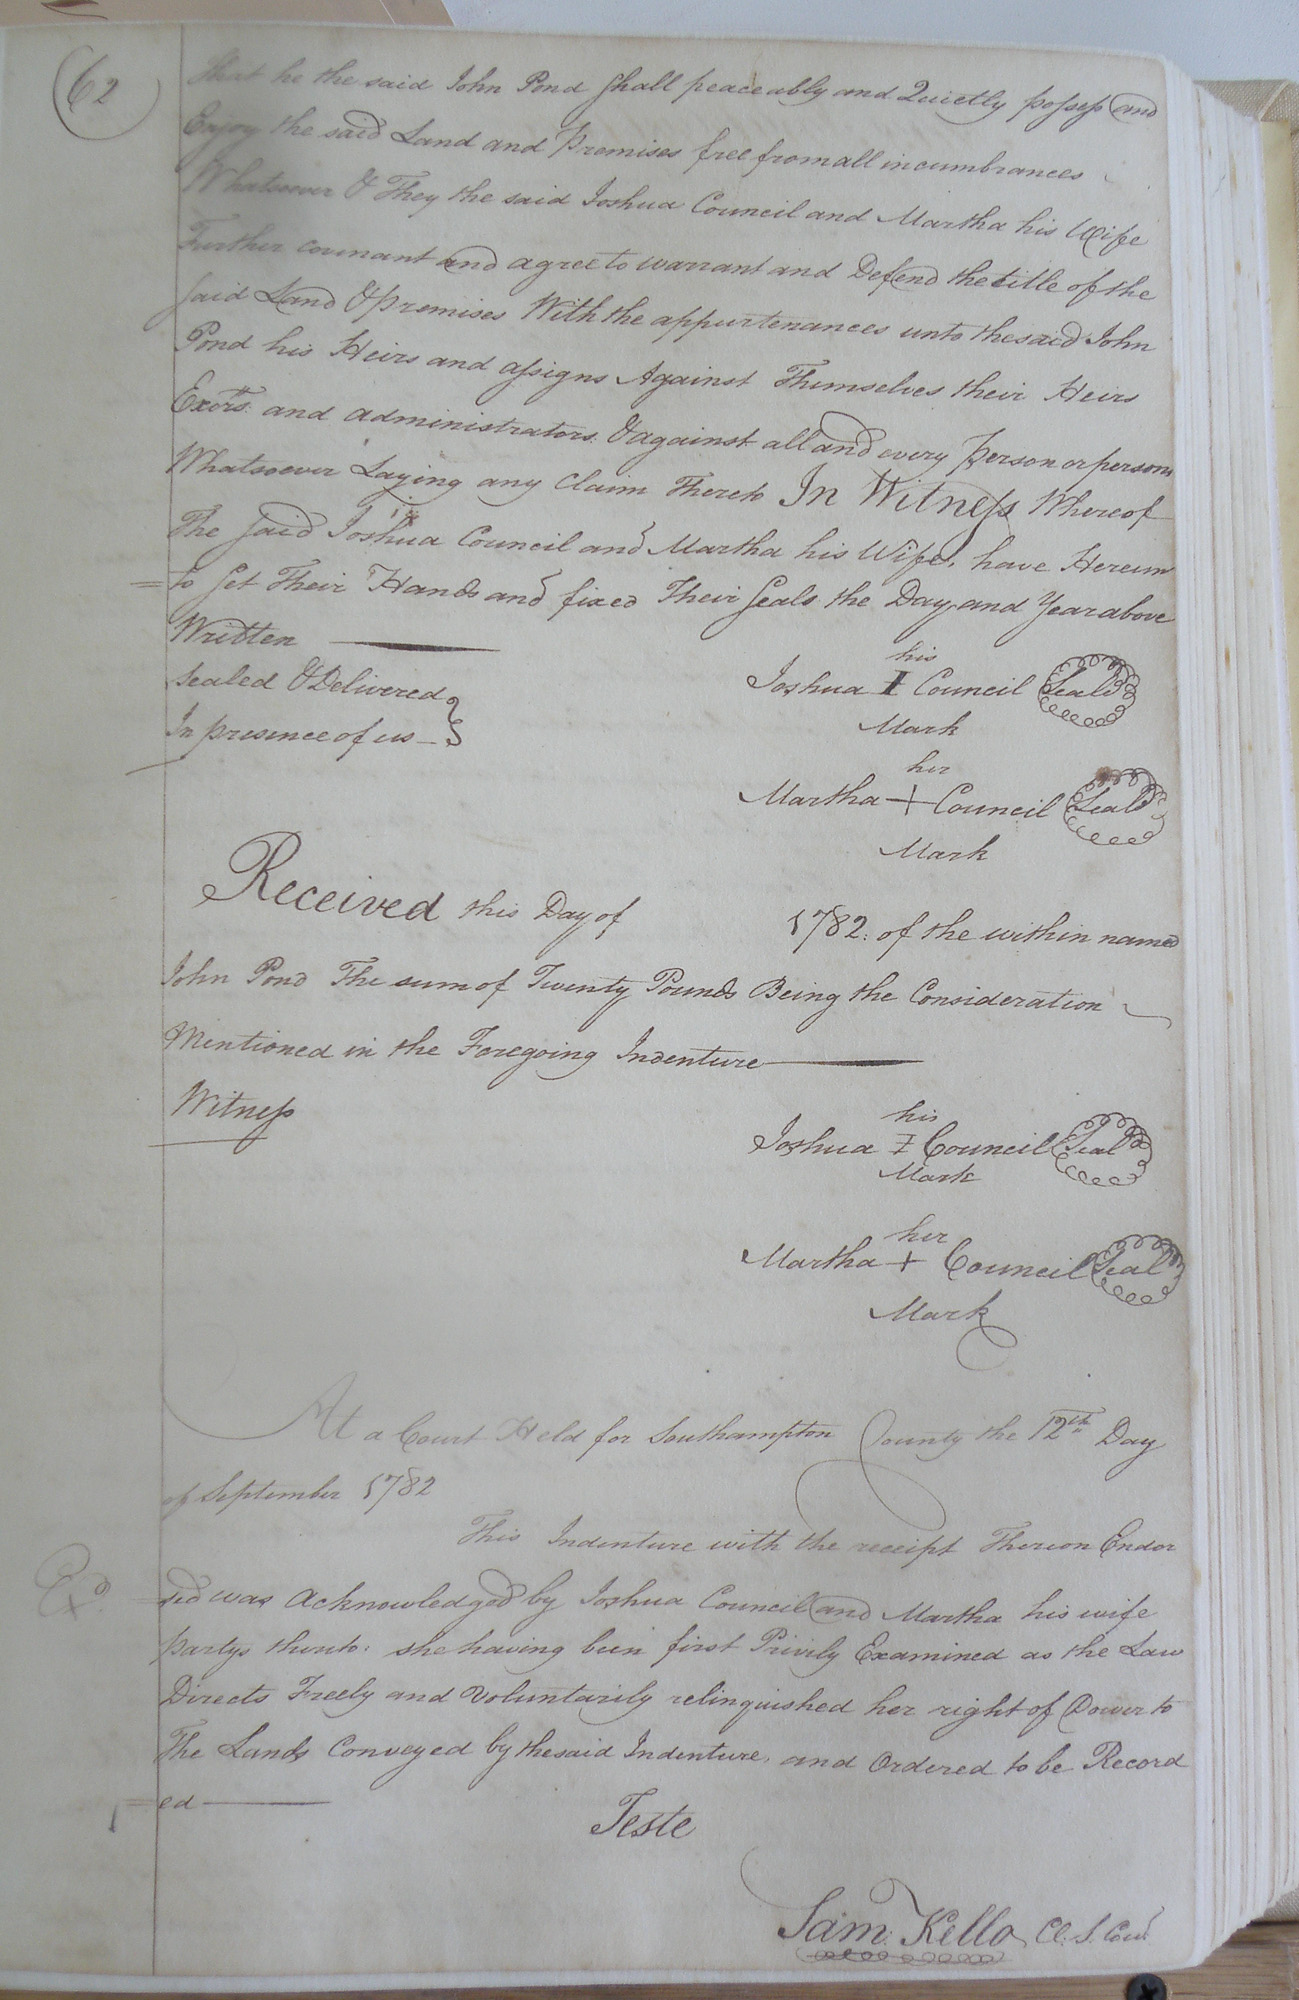 62
that he the said John Pond shall peaceably and Quietly possess and
Enjoy the said Land and Premises free from all incumbrances
Whatsoever & They the said Joshua Council and Martha his Wife
Further covenant and agree to warrant and Defend the title of the
said Land & premises With the appurtenances unto the said John
Pond his Heirs and assigns Against Themselves their Heirs
Exors. and administrators. & against all and every Person or persons
Whatsoever Laying any Claim Thereto In Witness Whereof
The said Joshua Council and Martha his Wife, have Hereun
=to set Their Hands and fixed Their Seals the Day and Year above
Written
Sealed & Delivered
In presence of us
his
Joshua I Council Seal
Mark
her
Martha + Council Seal
Mark
Received this Day of 1782. of the within named
John Pond The sum of Twenty Pounds Being the Consideration
Mentioned in the Foregoing Indenture
Witness
his
Joshua I Council Seal
Mark
her
Martha + Council Seal
Mark
At a Court Held for Southampton County the 12th Day
of September 1782
This Indenture with the receipt Thereon Endor
Exd
=sed was Acknowledged by Joshua Council and Martha his wife
partys thereto: she having been first Privily Examined as the Law
Directs Freely and Voluntarily relinquished her right of Dower to
The Lands Conveyed by the said Indenture, and Ordered to be Record
=ed
Teste
Sam: Kello Cl. S. Cou.